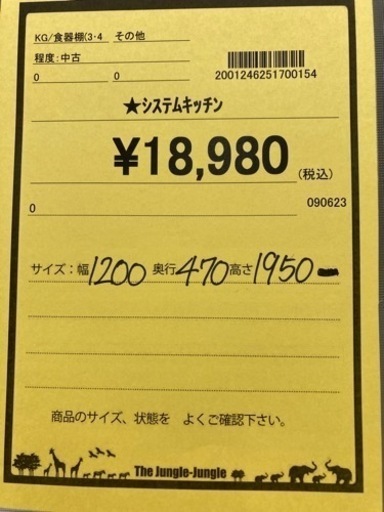 KG/食器棚(3・4 その他
程度:中古
0 0
2001246251700154
★システムキッチン
¥18,980(税込)
0 090623
サイズ:幅1200 奥行470高さ1950
商品のサイズ、状態を よくご確認下さい。
The Jungle-Jungle